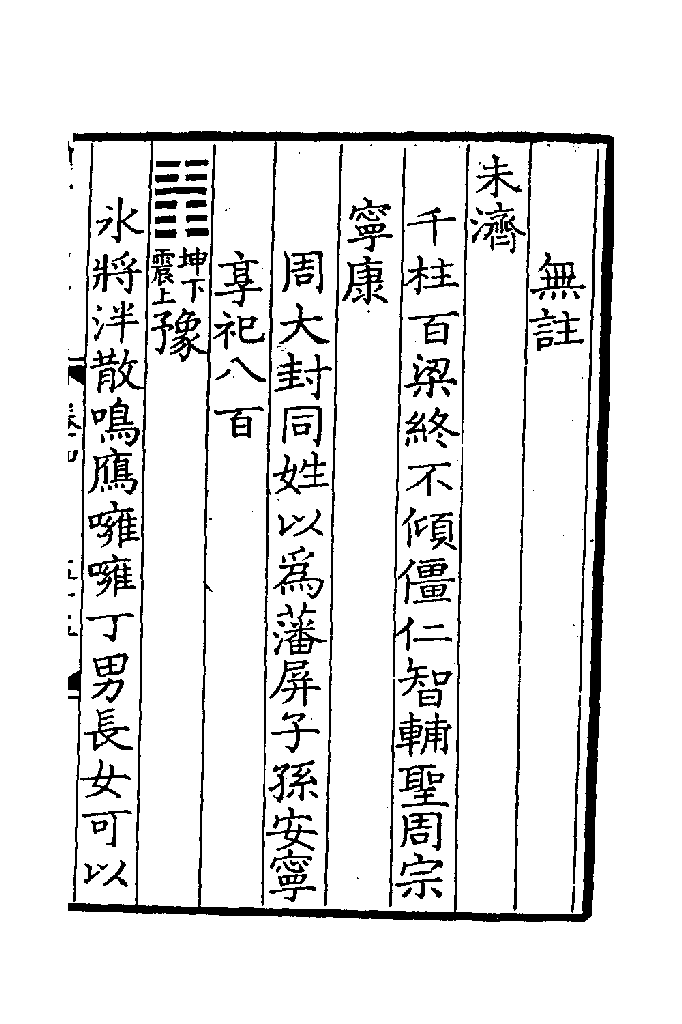 無註
未濟
千柱百梁終不傾僵仁智輔聖周宗
寧康
周大封同姓以為藩屏子孫安寧
享祀八百
䷏坤下震上豫
氷將泮散鳴鴈噰噰丁男長女可以